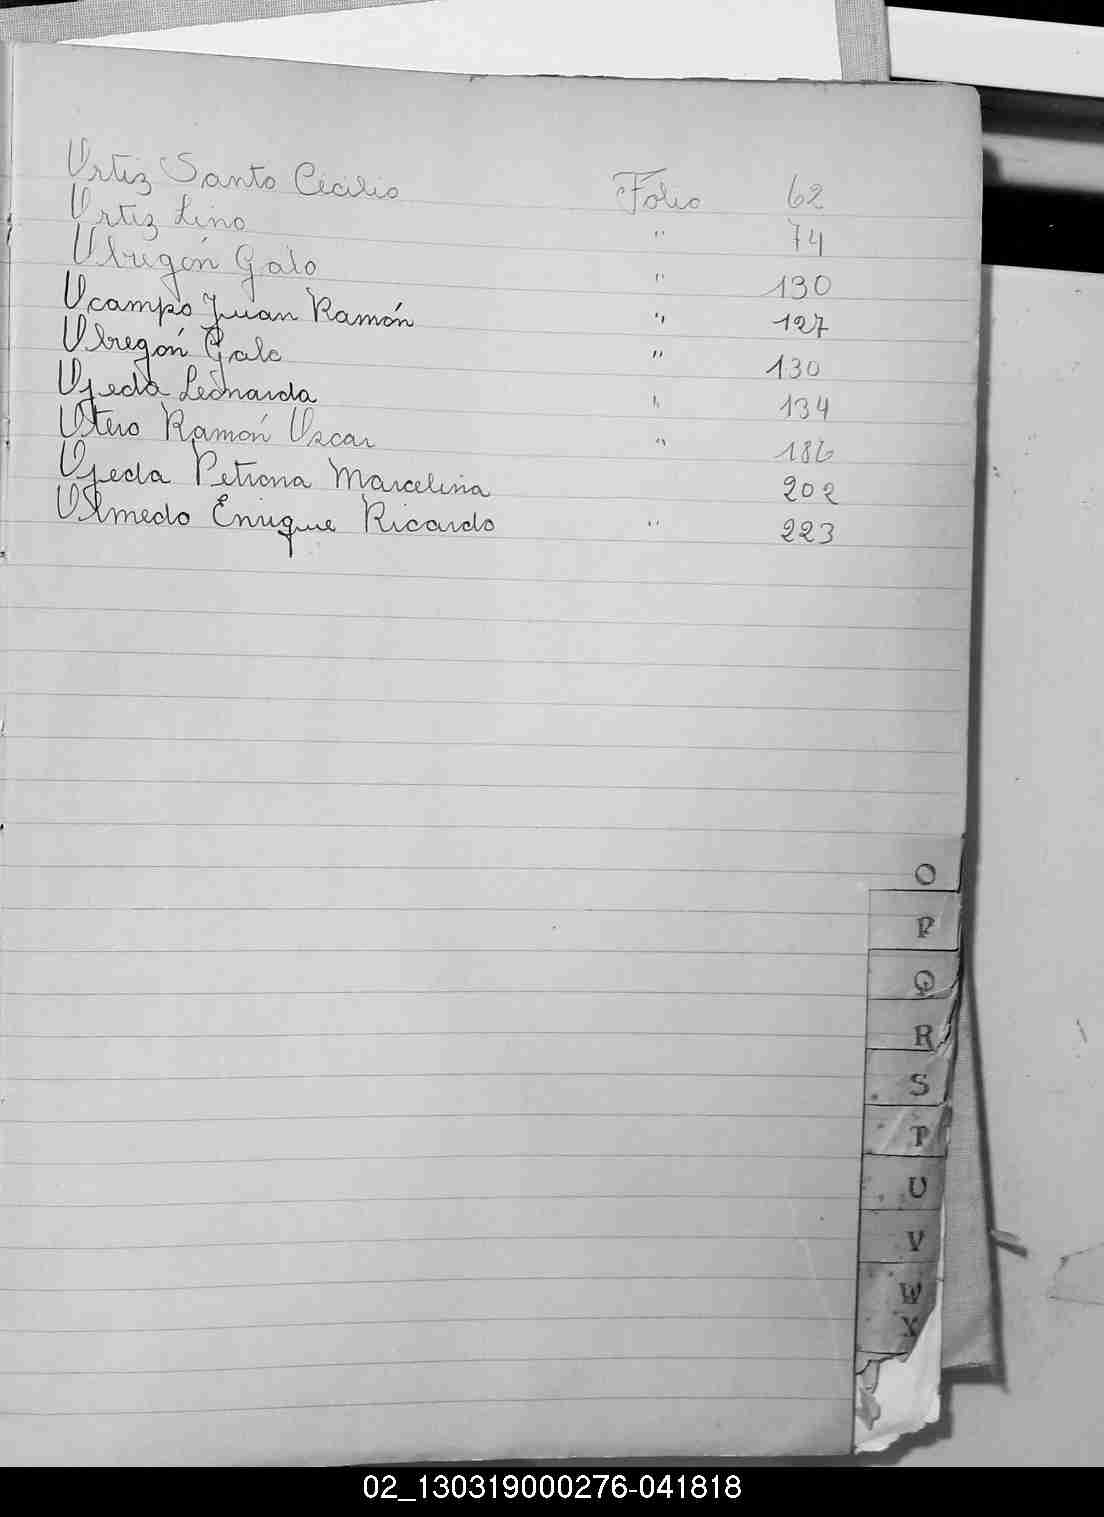 Ortiz Santo Cecilio Folio 62
Ortiz Lino " 74
Obregón Galo " 130
Ocampo Juan Ramón " 127
Obregón Galo " 130
Ojeda Leonarda " 134
Otero Ramón Oscar " 186
Ojeda Petrona Marcelina 202
Olmedo Enrique Ricardo " 223
O
P
Q
R
S
T
U
V
W
X
02_130319000276-041818